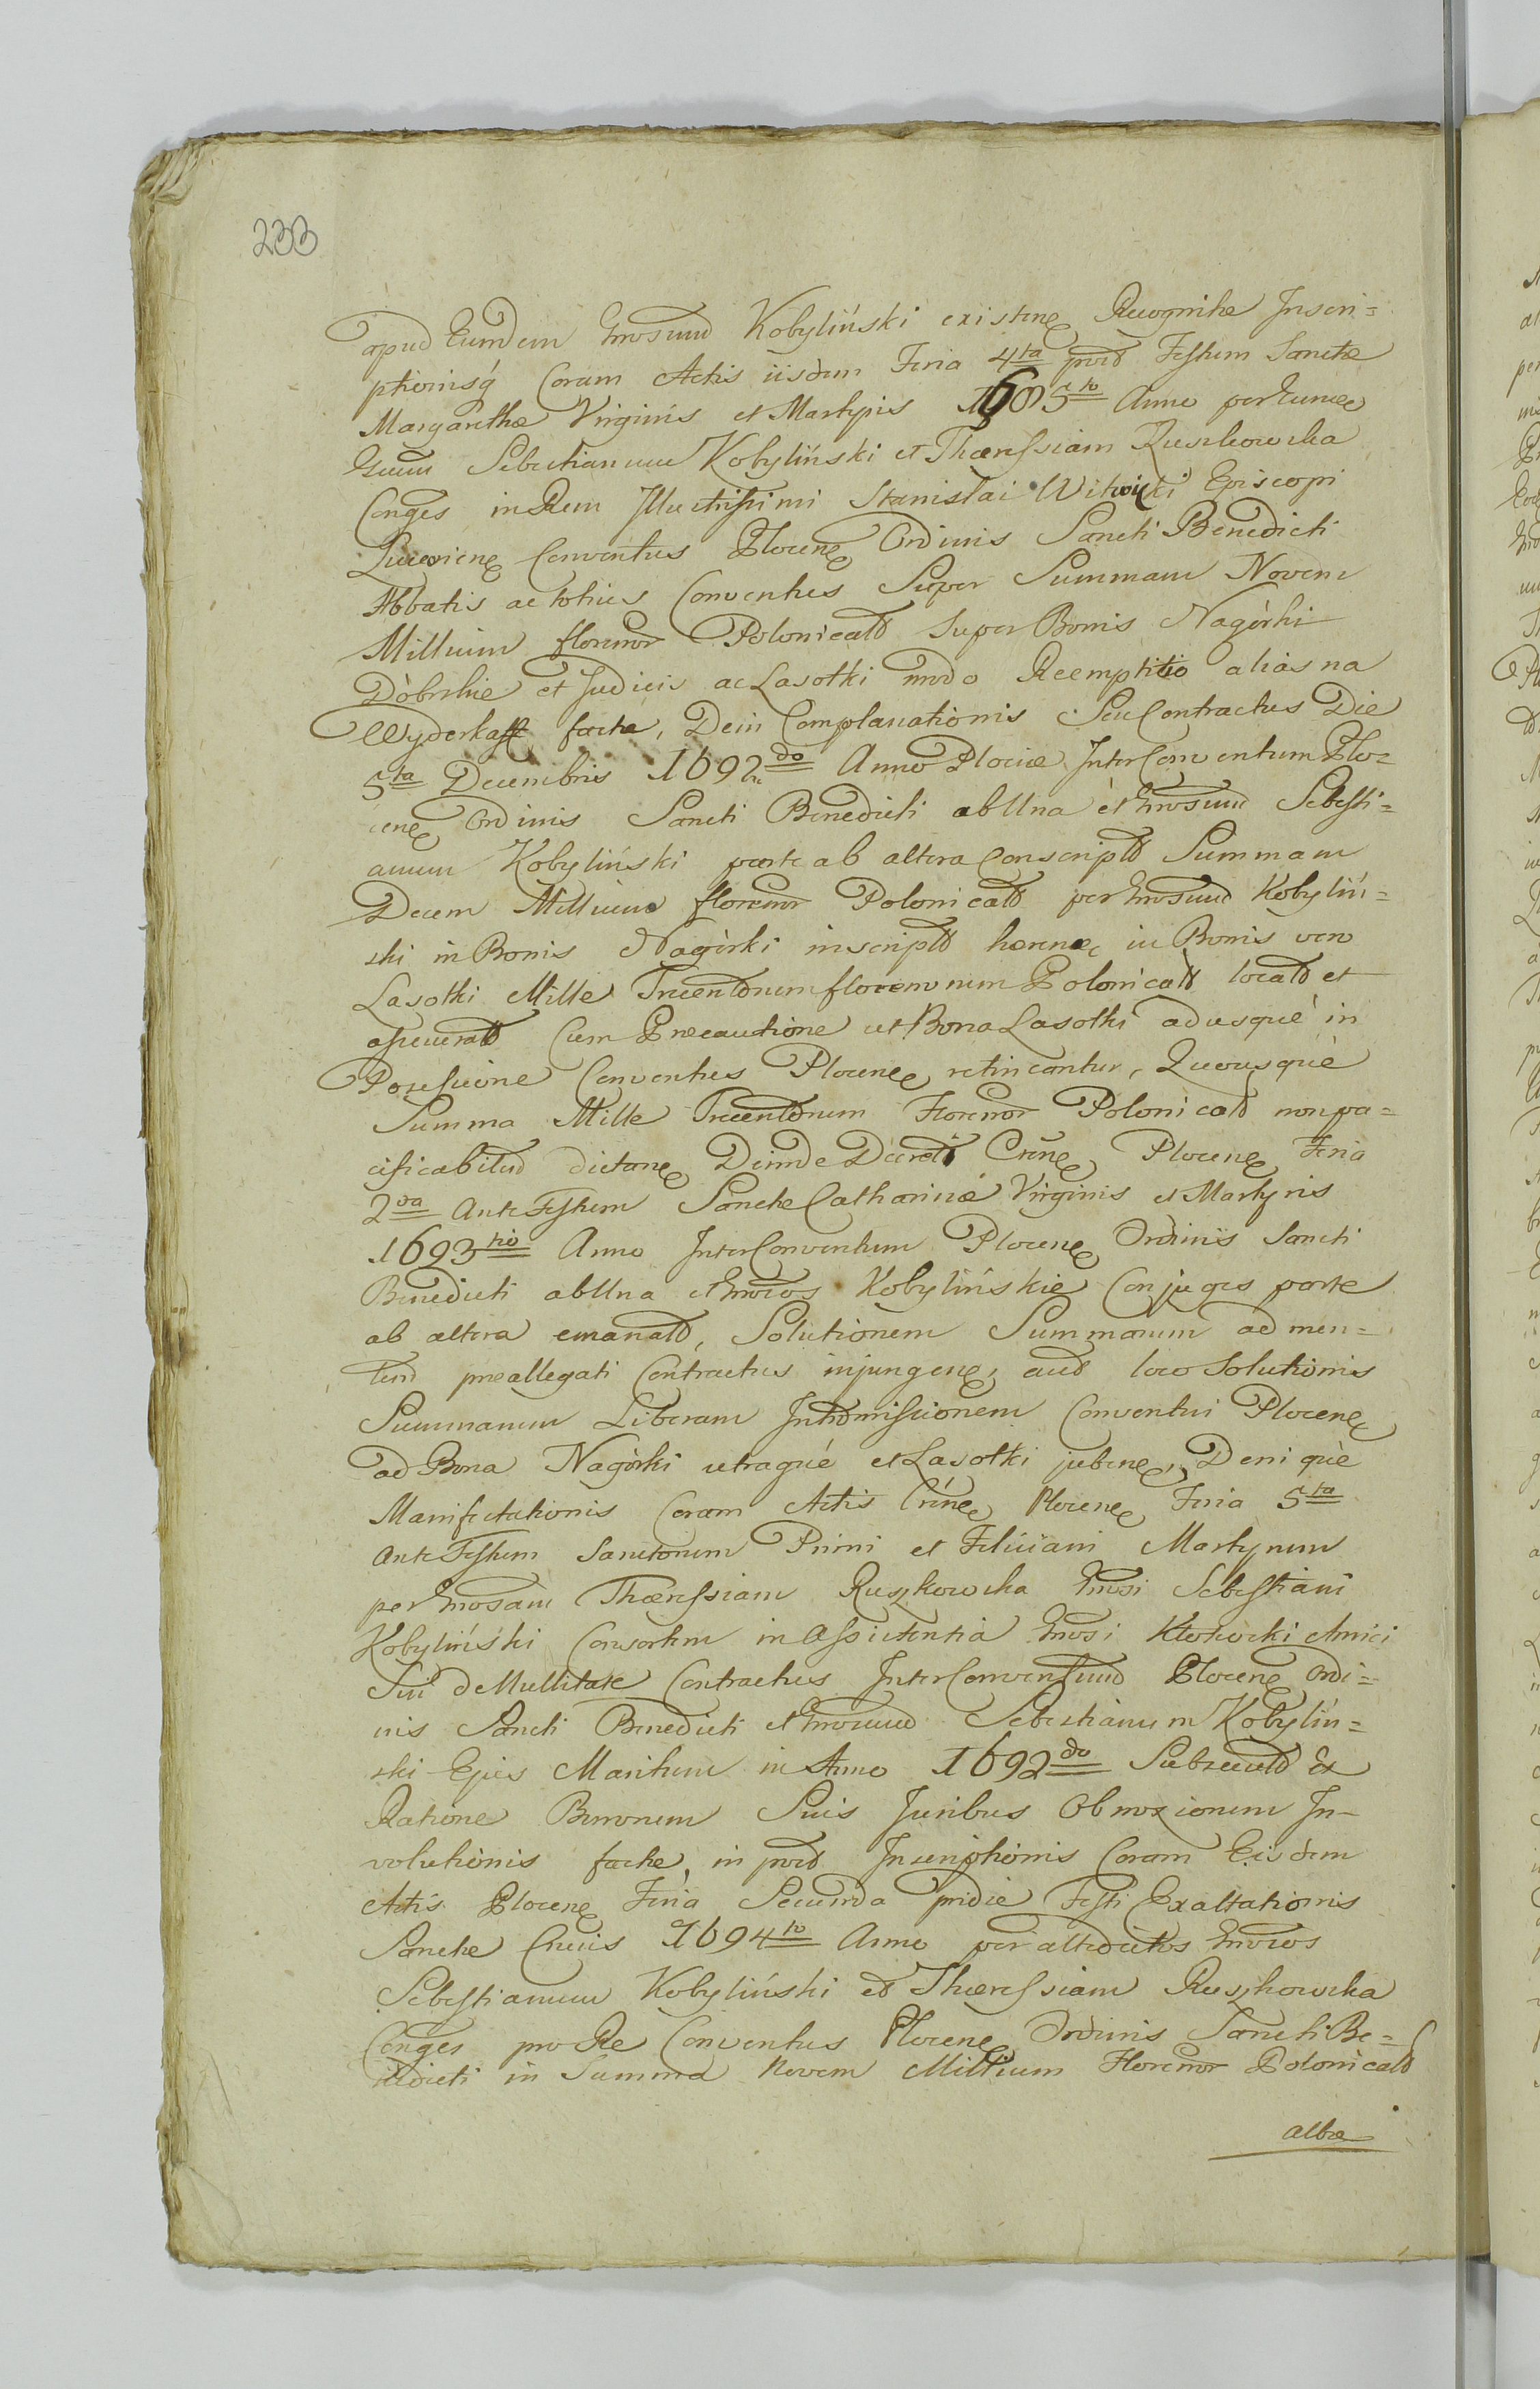 233
apud Eumdem Gnosum Kobyliński existenę Recognitæ Inscri=
ptionisq́ Coram Actis iisdem Feria 4ta post Festum Sanctæ
Margarithæ Virginis et Martyris 1685to Anno per Eumdę
Gsum Sebestianum Kobyliński et Theressiam Ruszkowska
Conges in Rem Illustrissimi Stanislai Witwicki Episcopi
Luceorienę Conventus Plocenę Ordinis Sancti Benedicti
Abbatis ac totius Conventus Super Summam Novem
Millium florenor Polonicald Super Bonis Nagórki
Dóbrskie et Judicis ac Lasotki modo Reemptitio alias na
Wyderkaff factæ, Dein Complanationis Seu Contractus Die
5ta Decembris 1692do Anno Plociæ Inter Conventum Plo=
cenę Ordinis Sancti Benedicti ab Una et Gnosum Sebesti=
anum Kobyliński parte ab altera Conscripti Summam
Decem Millium florenor Polonicald per Gnosum Kobyliń=
ski in Bonis Nagórki inscriptd hærenę in Bonis vero
Lasotki Mille Trecentorum florenorum Polonicald locatd et
assecuratd Cum Præcautione ut Bona Lasotki adusque in
Possessione Conventus Plocenę retineantur, Quousquè
Summa Mille Trecentorum Florenor Polonicald non pa=
cificabitur dictanę Deinde Decreti Crĩnę Plocenę Feria
2da Ante Festum Sanctæ Catharinæ Virginis et Martyris
1693tio Anno Inter Conventum Plocenę Ordinis Sancti
Benedicti ab Una et Gnosos Kobylińskie Conjuges parte
ab altera emanatd, Solutionem Summarum ad men=
tem præallegati Contractus injungenę, aut loco Solutionis
Summarum Liberam Intromissionem Conventui Plocenę
ad Bona Nagórki utraquè et Lasotki jubenę, Deniquè
Manifestationis Coram Actis Crĩnę Plocenę Feria 5ta
Ante Festum Sanctorum Primi et Feliciani Martyrum
per Gnosam Theressiam Ruszkowska Gnosi Sebestiani
Kobyliński Consortem in Assistentia Gnosi Kłokocki Amici
Sui de Nullitate Contractus Inter Conventum Plocenę Ordi=
nis Sancti Benedicti et Gnosum Sebestianum Kobyliń=
ski Ejus Maritum in Anno 1692do Subsecutd Ex
Ratione Bonorum Suis Juribus Obnoxiorum In=
volutionis factæ, in post Inscriptionis Coram Eisdem
Actis Plocenę Feria Secunda pridie Festi Exaltationis
Sanctæ Crucis 1694to Anno per altedictos Gnosos
Sebestianum Kobyliński et Theressiam Ruszkowska
Conges pro Re Conventus Plocenę Ordinis Sancti Be=
nedicti in Summa Novem Millium Florenor Polonicald
altæ